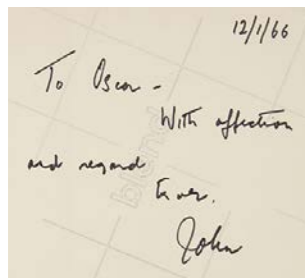 12/1/66
To Oscar -
With affection
and regard
Ever.
John